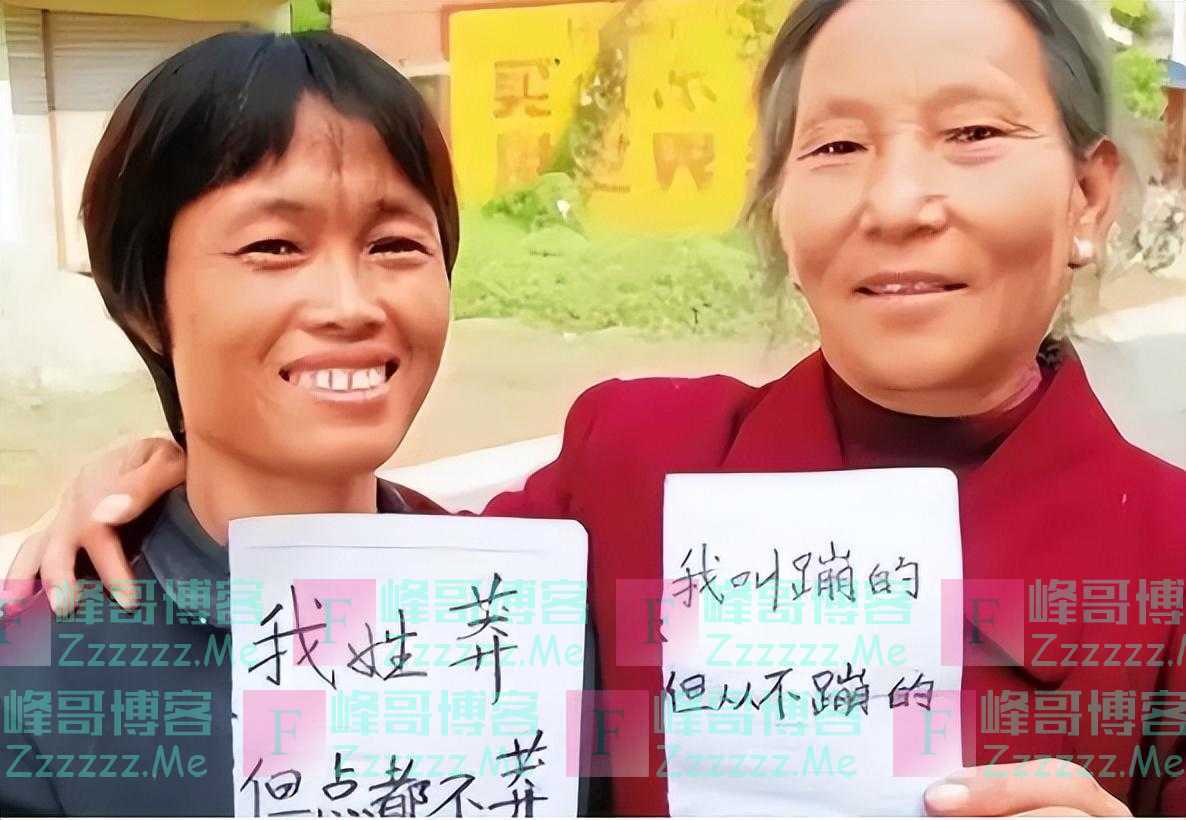 我姓莽
但点都不莽
我叫蹦的
但从不蹦的
买
界
F 峰哥博客
Zzzzzz.Me
F 峰哥博客
Zzzzzz.Me
F 峰哥博客
Zzzzzz.Me
F 峰哥博
Zzzzzz.Me
峰哥博客
Zzzzzz.Me
F 峰哥博客
Zzzzzz.Me
F 峰哥博客
Zzzzzz.Me
F 峰哥博客
Zzzzzz.Me